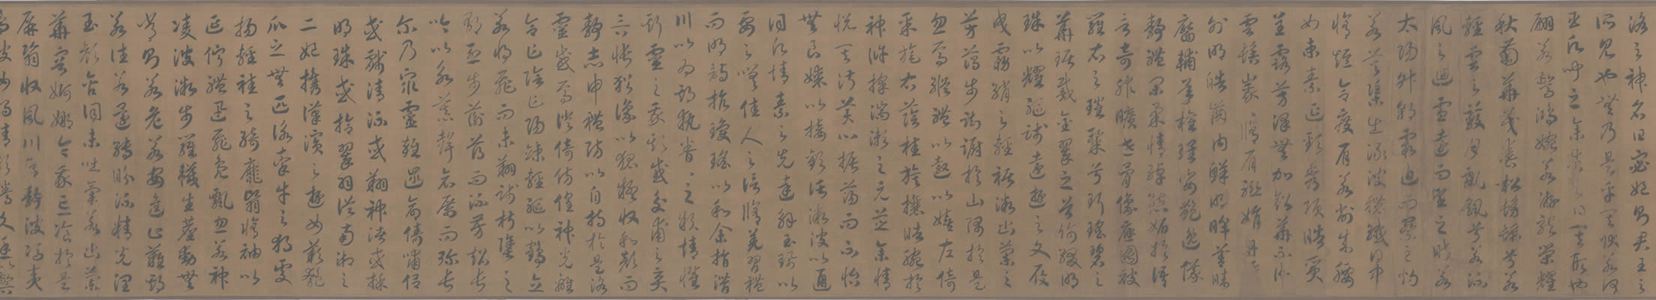 洛之神名曰宓妃則君王之
所見也無乃是乎其狀若何
臣願聞之余告之曰其形也
翩若驚鴻婉若游龍榮耀
秋菊華茂春松髣髴兮若
輕雲之蔽月飄飖兮若流
風之迴雪遠而望之皎若
太陽升朝霞迫而察之灼
若芙蕖出淥波穠纖得中
脩短合度肩若削成腰
如束素延頸秀項皓質
呈露芳澤無加鉛華不御
雲髻峩峩脩眉聯娟丹唇
外朗皓齒內鮮明眸善睞
靨輔承權瓌姿豔逸儀
靜體閑柔情綽態媚於語
言奇服曠世骨像應圖披
羅衣之璀粲兮珥瑤碧之
華琚戴金翠之首飾綴明
珠以耀軀踐遠遊之文履
曳霧綃之輕裾微幽蘭之
芳藹步踟躕於山隅於是
忽焉縱體以遨以嬉左倚
采旄右蔭桂旗攘皓腕於
神滸採湍瀨之玄芝余情
悅其淑美心振蕩而不怡
無良媒以接歡託微波以通
詞願誠素之先達解玉珮以
要之嗟佳人之信脩羌習禮
而明詩抗瓊珶以和余指潛
川以為期執眷眷之款情懼
斯靈之我欺感交甫之棄
言悵猶豫以狐疑收和顏而
靜志申禮防以自持於是洛
靈感焉徙倚彷徨神光離
合乍陰乍陽竦輕軀以鶴立
若將飛而未翔踐椒塗之
郁烈步蘅薄而流芳超長
吟以永慕聲哀厲而彌長
爾乃眾靈雜遝命儔嘯侶
或戲清流或翔神渚或採
明珠或拾翠羽從南湘之
二妃攜漢濱之遊女歎匏
瓜之無匹詠牽牛之獨處
揚輕袿之猗靡翳脩袖以
延佇體迅飛鳧飄忽若神
凌波微步羅韈生塵動無
常則若危若安進止難期
若往若還轉眄流精光潤
玉顏含詞未吐氣若幽蘭
華容婀娜令我忘飡於是
屏翳收風川后靜波馮夷